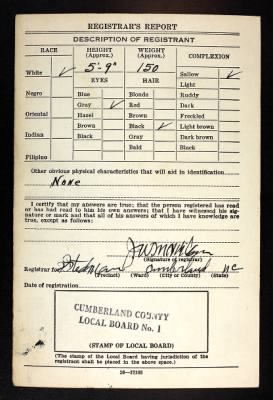 REGISTRAR'S REPORT
DESCRIPTION OF REGISTRANT
RACE HEIGHT (Approx.) WEIGHT (Approx.) COMPLEXION
White ✓ 5'-9" 150 Sallow ✓
EYES HAIR Light
Negro Blue Blonde Ruddy
Gray ✓ Red Dark
Oriental Hazel Brown Freckled
Brown Black ✓ Light brown
Indian Black Gray Dark brown
Bald Black
Filipino
Other obvious physical characteristics that will aid in identification
None
I certify that my answers are true; that the person registered has read
or has had read to him his own answers; that I have witnessed his sig-
nature or mark and that all of his answers of which I have knowledge are
true, except as follows:
(Signature of registrar)
Registrar for Stedman Cumberland NC
(Precinct) (Ward) (City or county) (State)
Date of registration
CUMBERLAND COUNTY
LOCAL BOARD No. 1
(STAMP OF LOCAL BOARD)
(The stamp of the Local Board having jurisdiction of the
registrant shall be placed in the above space.)